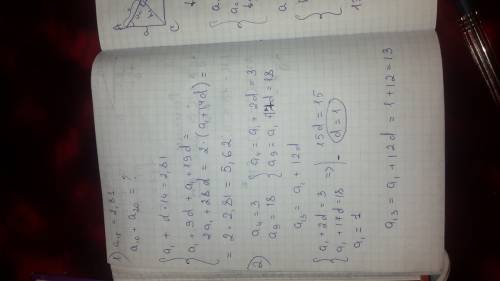 1) a₁₅ = 2,81
a₁₀ + a₂₀ = ?
a₁ + d·14 = 2,81
a₁ + 9d + a₁ + 19d =
2a₁ + 28d = 2·(a₁+14d) =
= 2·2,81 = 5,62
2) a₄ = 3 { a₄ = a₁ + 2d = 3
a₉ = 18 { a₉ = a₁ 17d = 18
a₁₃ = a₁ + 12d
{ a₁ + 2d = 3 => | - 15d = 15
{ a₁ + 17d = 18 d = 1
a₁ = 1
a₁₃ = a₁ + 12d = 1 + 12 = 13